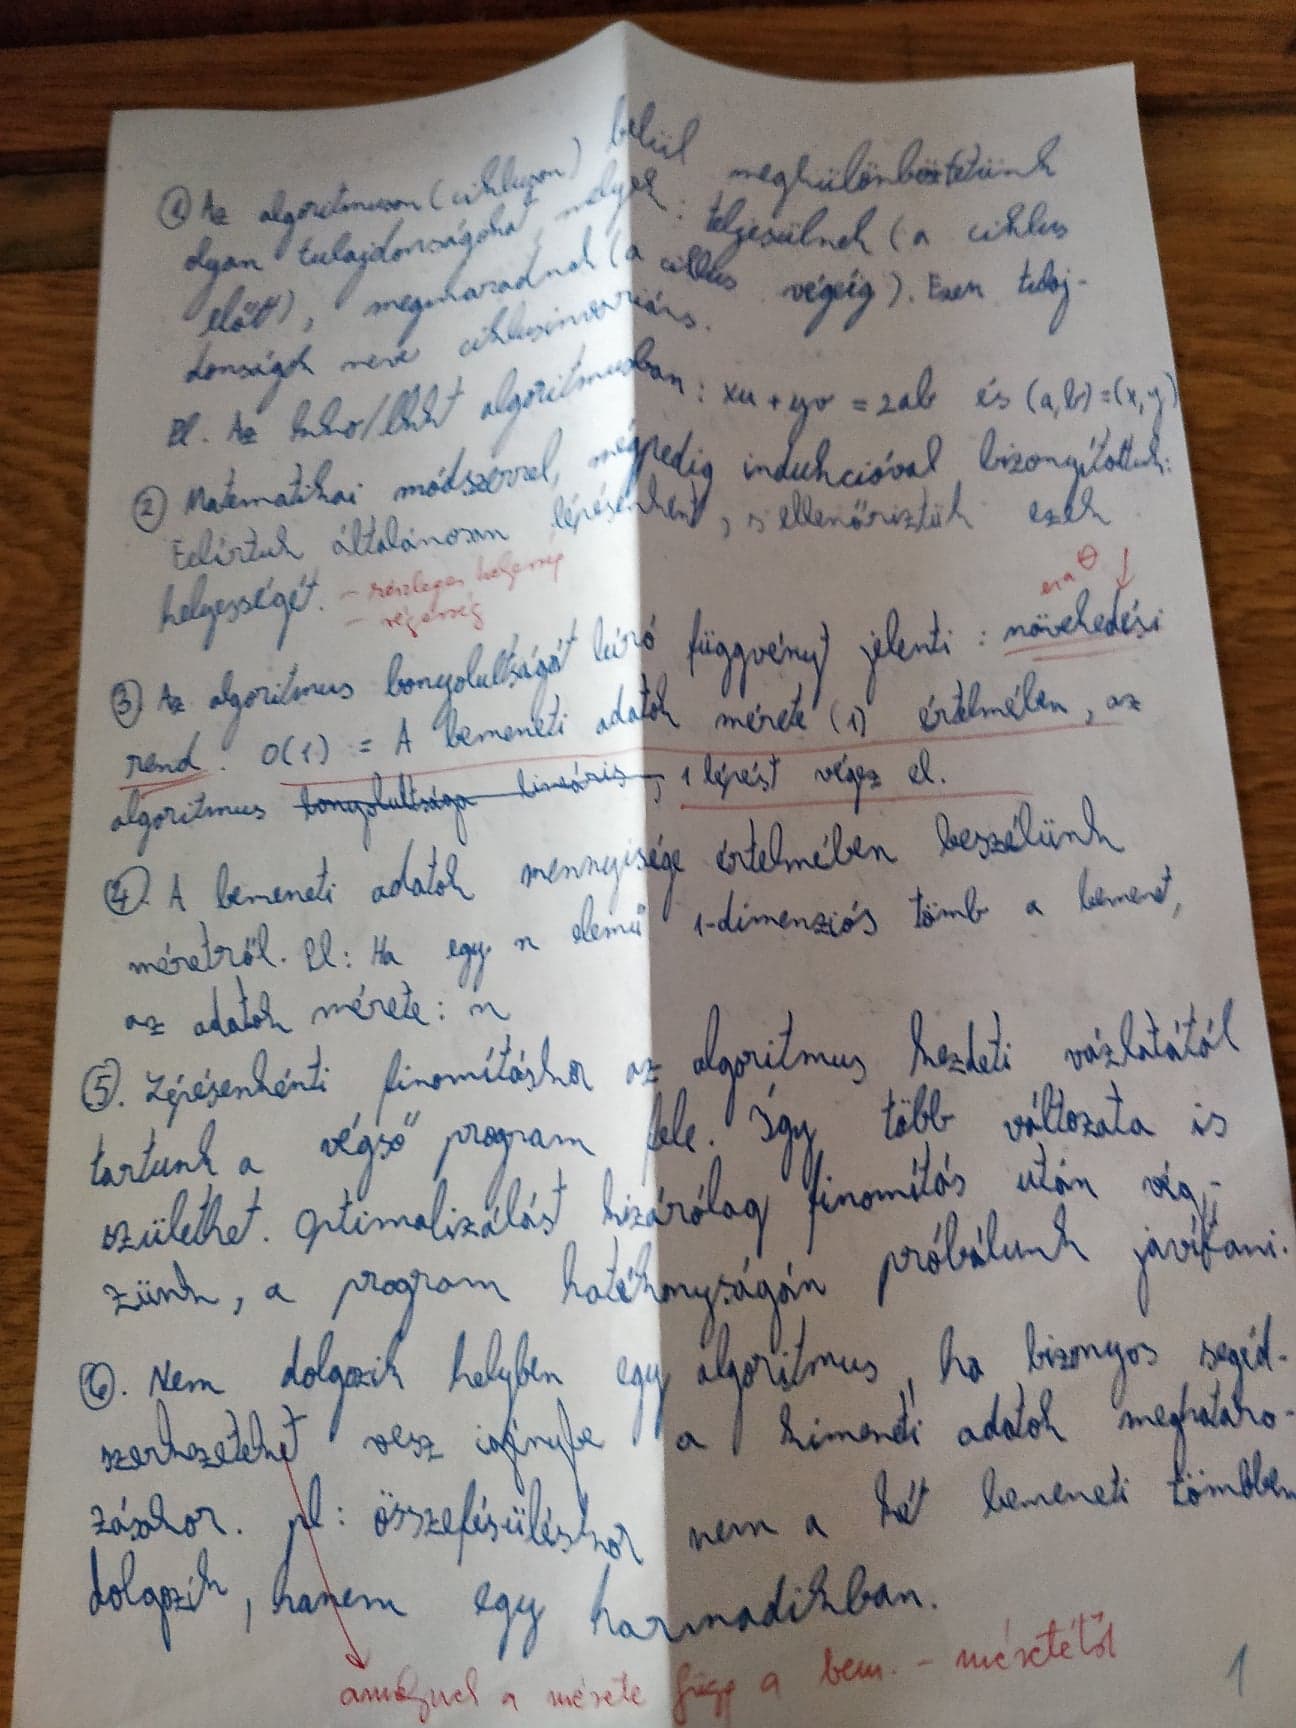 ① Az algoritmuson (cikluson) belül megkülönböztetünk
olyan tulajdonságokat, melyek: teljesülnek (a ciklus
előtt), megmaradnak (a ciklus végéig). Ezen tulaj-
donságok neve ciklusinvariáns.
Pl. Az lnko/lkkt algoritmusban: xu + yv = 2ab és (a,b)=(x,y)
② Matematikai módszerrel, mégpedig indukcióval bizonyítottuk:
Felírtuk általánosan lépésenként, s ellenőriztük ezek
helyességét. - részleges helyesség
- végesség
ez a Θ ↓
③ Az algoritmus bonyolultságát leíró függvényt jelenti: növekedési
rend. O(1) = A bemeneti adatok mérete (1) értelmében, az
algoritmus bonyolultsága lineáris, 1 lépést végez el.
④. A bemeneti adatok mennyisége értelmében beszélünk
méretről. Pl: Ha egy n elemű 1-dimenziós tömb a bemenet,
az adatok mérete: n
⑤. Lépésenkénti finomításkor az algoritmus kezdeti vázlatától
tartunk a végső program fele. Így több változata is
születhet. Optimalizálást kizárólag finomítás után vég-
zünk, a program hatékonyságán próbálunk javítani.
⑥. Nem dolgozik helyben egy algoritmus, ha bizonyos segéd-
szerkezeteket vesz igénybe a kimeneti adatok meghatáro-
zásakor. pl: összefésüléskor nem a két bemeneti tömbben
dolgozik, hanem egy harmadikban.
amelynek a mérete függ a bem. - méretétől
1